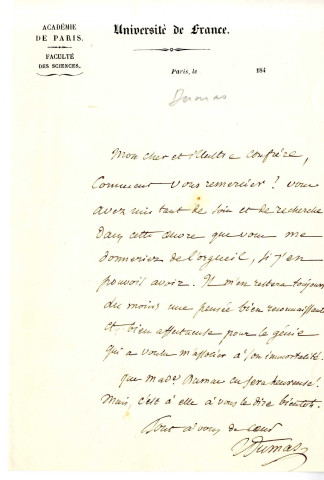 ACADÉMIE
DE PARIS.
FACULTÉ
DES SCIENCES.
Université de France.
Paris, le 184
Dumas
Mon cher et illustre confrère,
Comment vous remercier! vous
avez mis tant de soin et de recherche
dans cette œuvre que vous me
donneriez de l'orgueil, si j'en
pouvois avoir. Il m'en restera toujours
du moins une pensée bien reconnaissante
et bien affectueuse pour le génie
qui a voulu m'associer à son immortalité.
que Made Dumas en sera heureuse!
Mais, c'est à elle à vous le dire bientôt.
Tout à vous de cœur
Dumas